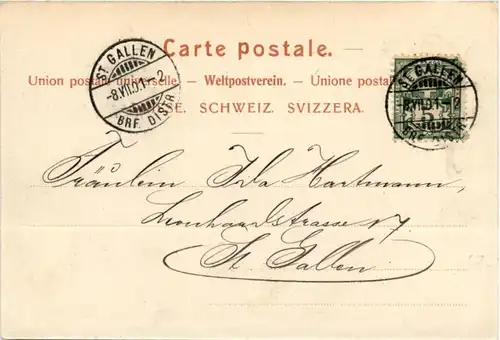 Carte postale.
Union postale universelle. – Weltpostverein. – Unione posta
SE. SCHWEIZ. SVIZZERA.
ST. GALLEN
-8.VII.01.-2
BRF. DISTR
ST. GALLEN
-8.VII.01.-2
BRF. DISTR
5
Fräulein Ida Hartmann,
Leonhardstrasse 17
St. Gallen